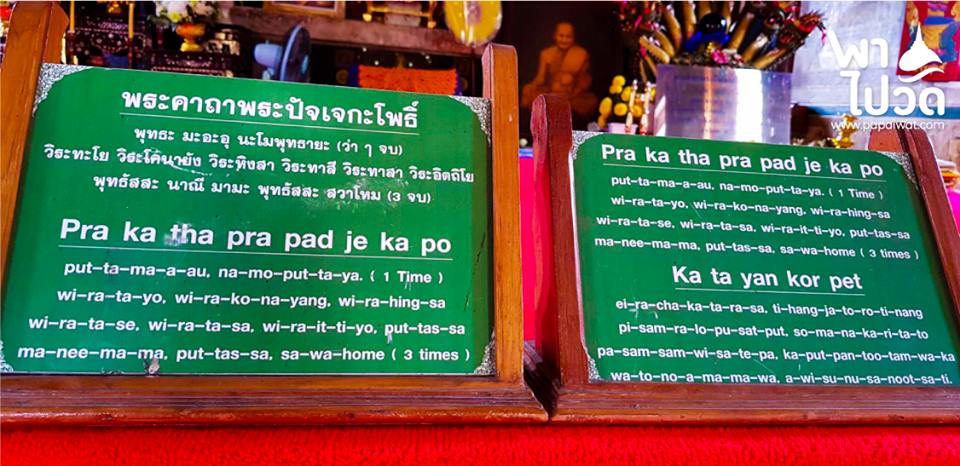 พระคาถาพระปัจเจกะโพธิ์
พุทธะ มะอะอุ นะโมพุทธายะ (ว่า ๆ จบ)
วิระทะโย วิระโคนายัง วิระหิงสา วิระทาสี วิระทาสา วิระอิตถิโย
พุทธัสสะ นาณี มามะ พุทธัสสะ สวาโหม (3 จบ)
Pra ka tha pra pad je ka po
put-ta-ma-a-au, na-mo-put-ta-ya. ( 1 Time )
wi-ra-ta-yo, wi-ra-ko-na-yang, wi-ra-hing-sa
wi-ra-ta-se, wi-ra-ta-sa, wi-ra-it-ti-yo, put-tas-sa
ma-nee-ma-ma, put-tas-sa, sa-wa-home ( 3 times )
Pra ka tha pra pad je ka po
put-ta-ma-a-au, na-mo-put-ta-ya. ( 1 Time )
wi-ra-ta-yo, wi-ra-ko-na-yang, wi-ra-hing-sa
wi-ra-ta-se, wi-ra-ta-sa, wi-ra-it-ti-yo, put-tas-sa
ma-nee-ma-ma, put-tas-sa, sa-wa-home ( 3 times )
Ka ta yan kor pet
ei-ra-cha-ka-ta-ra-sa, ti-hang-ja-to-ro-ti-nang
pi-sam-ra-lo-pu-sat-put, so-ma-na-ka-ri-ta-to
pa-sam-sam-wi-sa-te-pa, ka-put-pan-too-tam-wa-ka
wa-to-no-a-ma-ma-wa, a-wi-su-nu-sa-noot-sa-ti.
พาไปวัด
www.papaiwat.com